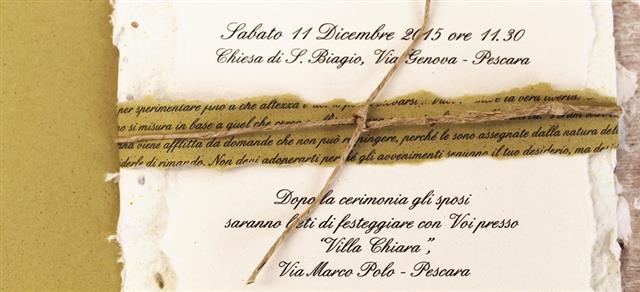 Sabato 11 Dicembre 2015 ore 11.30
Chiesa di S. Biagio, Via Genova - Pescara
per sperimentare fino a che altezza
no si misura in base a quel che
una viene afflitta da domande che non può respingere, perché le sono assegnate dalla natura
di rimando. Non devi adoperarti perché gli avvenimenti seguano il tuo desiderio, ma
Dopo la cerimonia gli sposi
saranno lieti di festeggiare con Voi presso
"Villa Chiara",
Via Marco Polo - Pescara